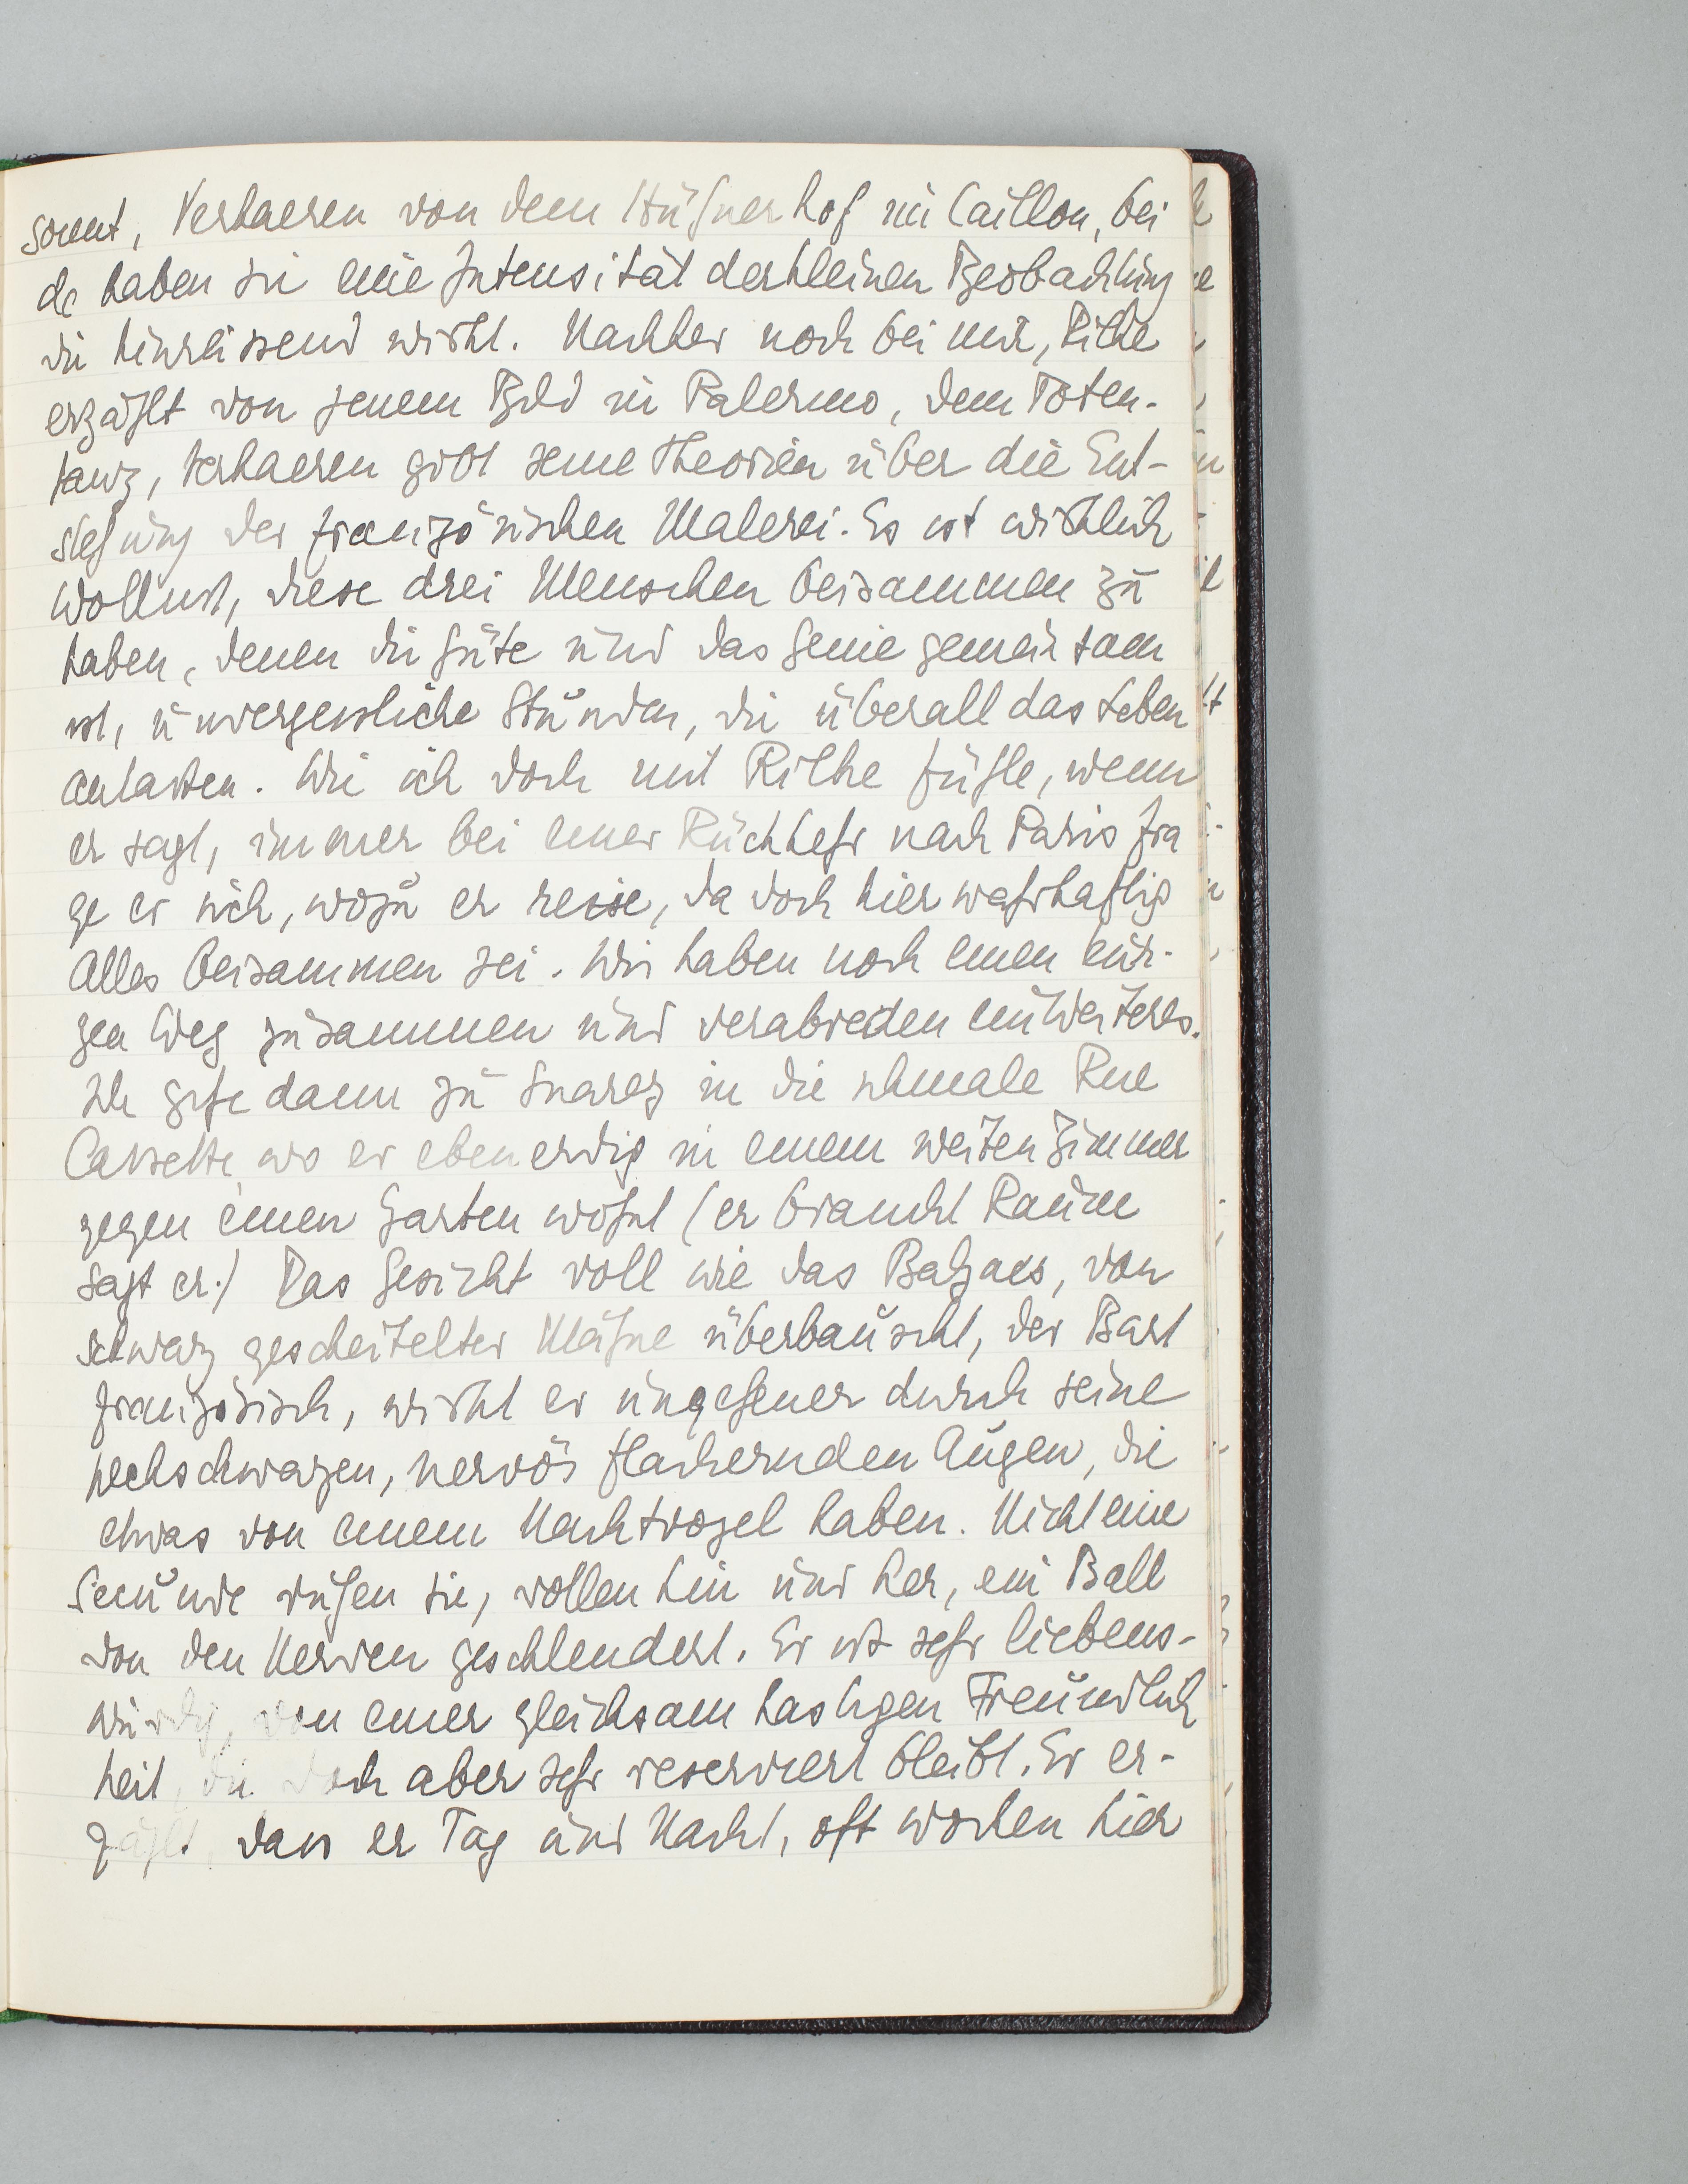 sonnt, Verhaeren von dem Hühnerhof in Caillou, bei
de haben sie eine Intensität der kleinen Beobachtung
die hinreissend wirkt. Nachher noch bei mir, Rilke
erzählt von jenem Bild in Palermo, dem Toten-
tanz, Verhaeren gibt seine Theorien über die Ent-
stehung der französischen Malerei. Es ist wirklich
Wollust, diese drei Menschen beisammen zu
haben, denen die Güte und das Genie gemeinsam
ist, unvergessliche Stunden, die überall das Leben
antasten. Wie ich doch mit Rilke fühle, wenn
er sagt, immer bei einer Rückkehr nach Paris fra
ge er sich, wozu er reise, da doch hier wahrhaftig
Alles beisammen sei. Wir haben noch einen kur-
zen Weg zusammen und verabreden ein Weiteres.
Ich gehe dann zu Suarez in die schmale Rue
Cassette, wo er ebenerdig in einem weiten Zimmer
gegen einen Garten wohnt (er braucht Raum
sagt er.) Das Gesicht voll wie das Balzacs, von
schwarz gescheitelter Mähne überbauscht, der Bart
französisch, wirkt er ungeheuer durch seine
pechschwarzen, nervös flackernden Augen, die
etwas von einem Nachtvogel haben. Nicht eine
Secunde ruhen sie, rollen hin und her, ein Ball
von den Nerven geschleudert. Er ist sehr liebens-
würdig, von einer gleichsam hastigen Freundlich
keit, die doch aber sehr reserviert bleibt. Er er-
zählt, dass er Tag und Nacht, oft Wochen hier